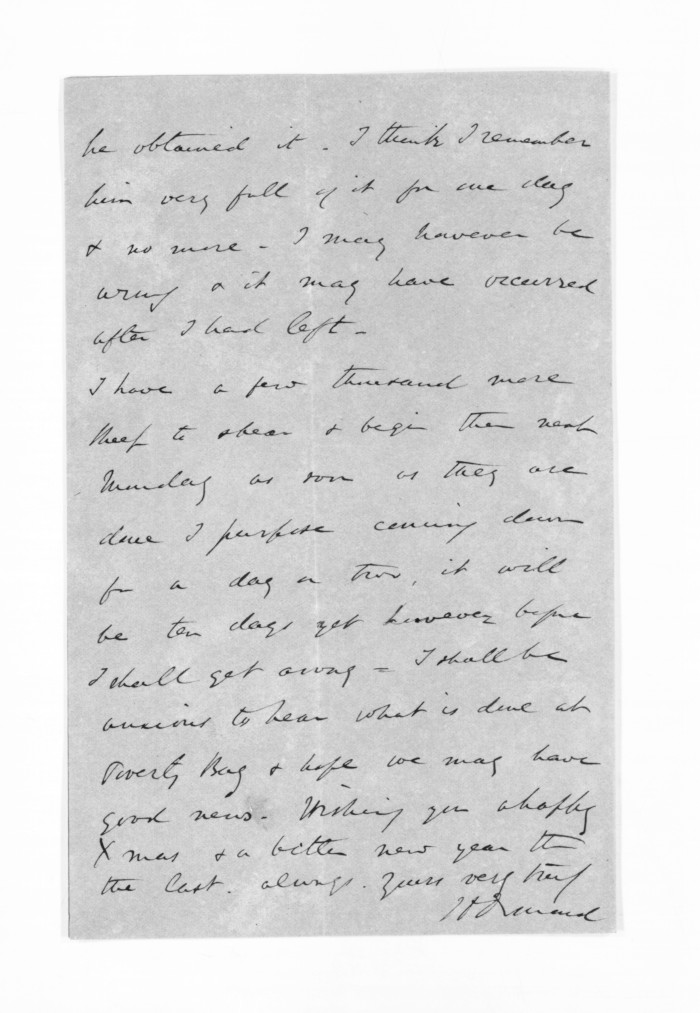 he obtained it - I think I remember
him very full of it for one day
& no more - I may however be
wrong & it may have occurred
after I had left -
I have a few thousand more
sheep to shear & begin them next
Monday as soon as they are
done I purpose coming down
for a day or two, it will
be ten days yet however before
I shall get away = I shall be
anxious to hear what is done at
Poverty Bay & hope we may have
good news. Wishing you a happy
Xmas & a better new year th
the last. always. yours very truly
Ormond